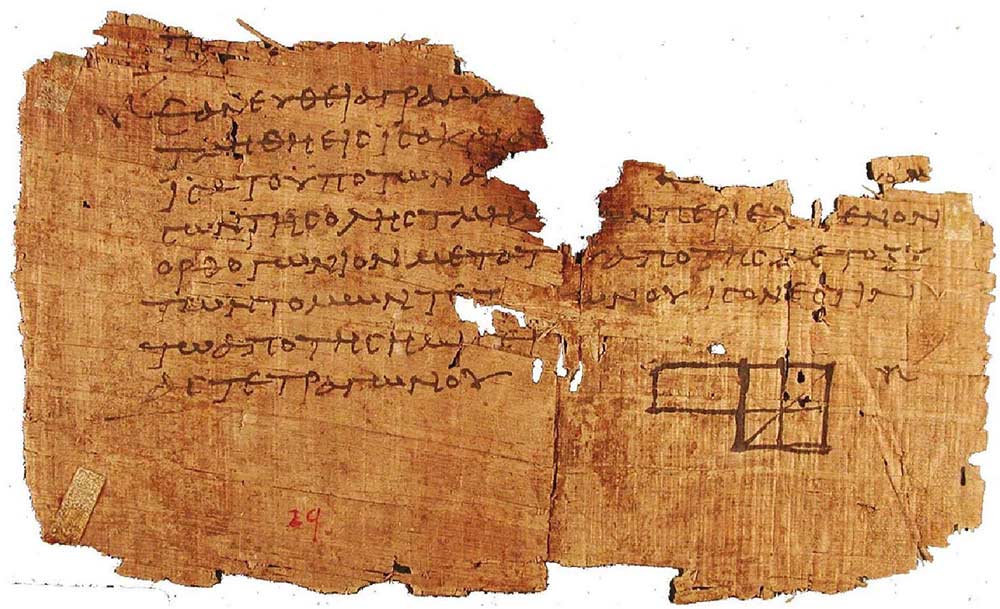 ΕΑΝΕΥΘΕΙΑΓΡΑΜΜ
ΤΜΗΘΗΕΙϹΙϹΑΚΑΙΑ
ΙϹΑΤΟΥΠΟΤΩΝΑΝ
ϹΩΝΤΗϹΟΛΗϹΤΜΗΜ ΩΝΠΕΡΙΕΧ ΕΝΟΝ
ΟΡΘΟΓΩΝΙΟΝΜΕΤΑΤ ΑΠΟΤΗϹΜΕΤΟΞΥ
ΤΩΝΤΟΜΩΝΤΕΤ ΩΝΟΥΙϹΟΝΕϹΤΙΝ
ΤΩΑΠΟΤΗϹΗΜΙϹΕΙ
ΑϹΤΕΤΡΑΓΩΝΟΥ
29